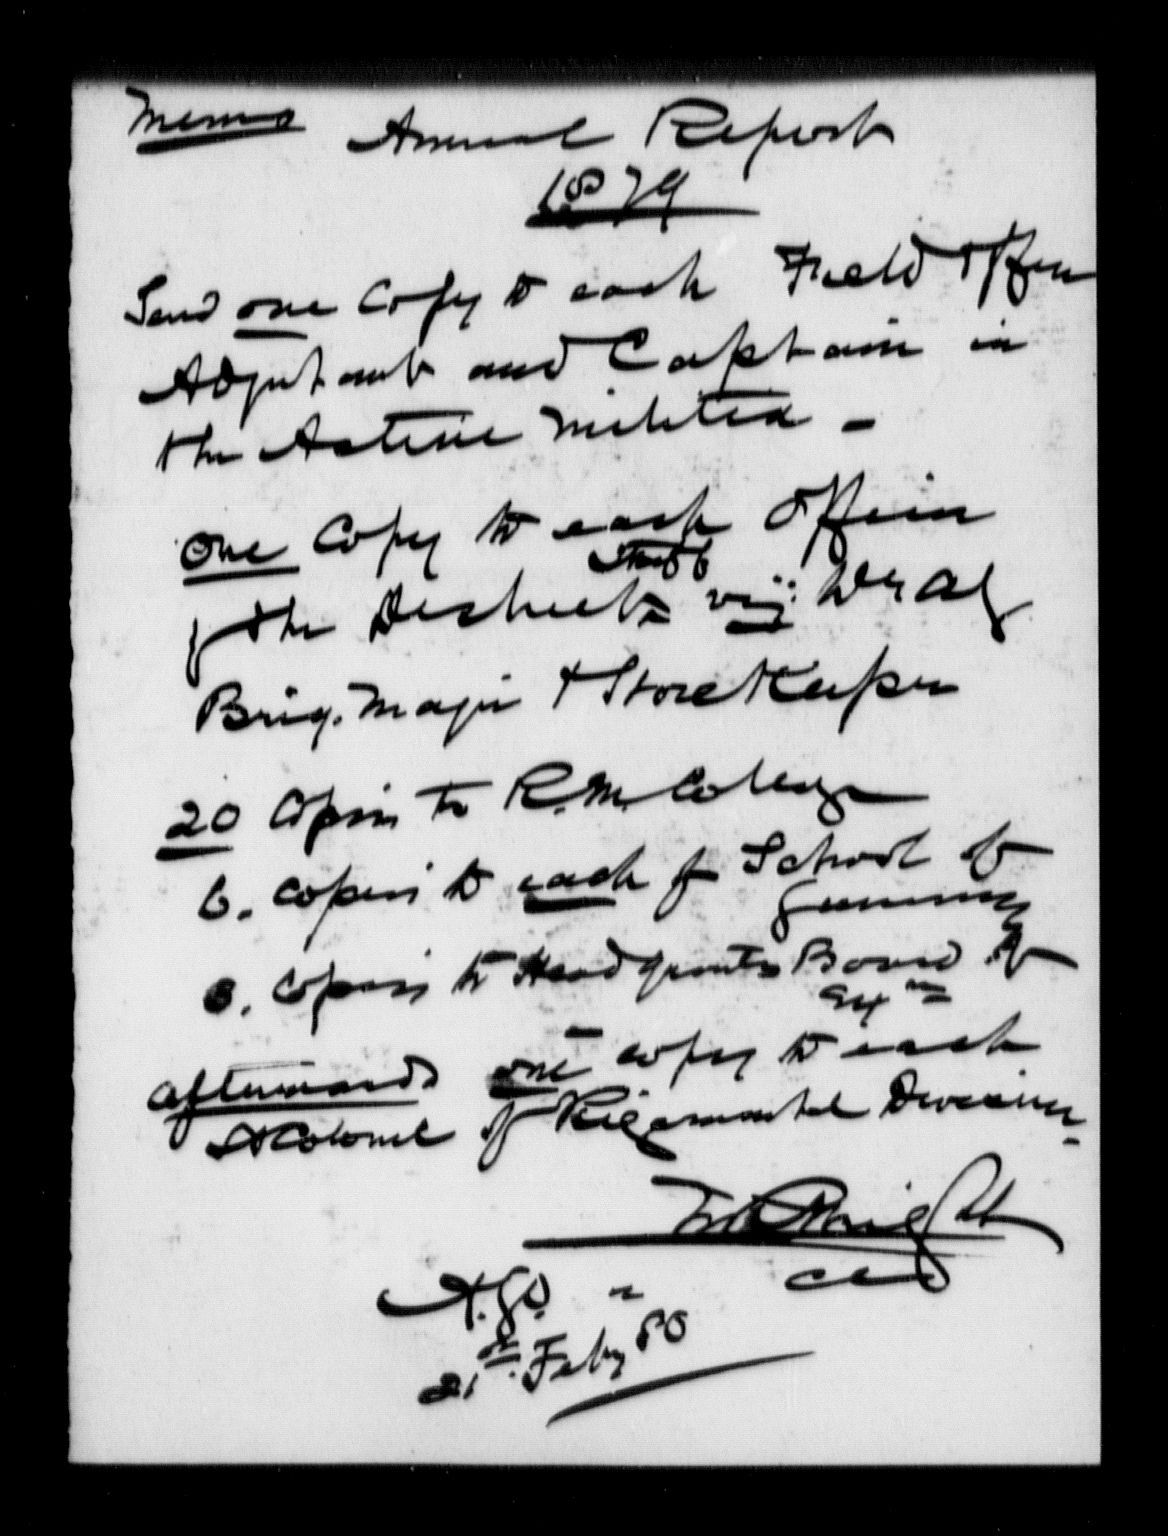 Memo Annual Report
1879
Send one Copy to each Field Officer
Adjutant and Captain in
the Active Militia -
One Copy to each Officer
of the District Staff viz: D.A.G.
Brig. Major & Store Keeper
20 Copies to R.M. College
6. copies to each of School of
Gunnery
6. Copies to Head Quarters Board of
Exn
afterwards one copy to each
Lt Colonel of Regimental Division
A.G.O.
21st Feby 80